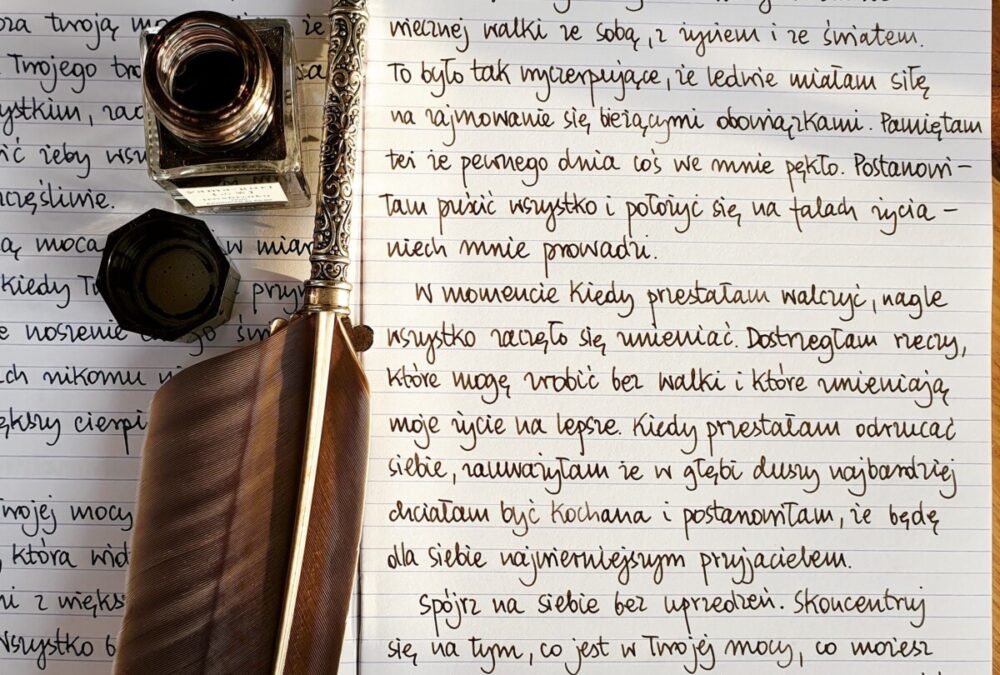 oza twoją
Twojego
ystkim,
ić żeby
częśliwie.
ą mocą w miar
Kiedy
e noszenie
ich nikomu
iększy cierpi
wojej mocy
, która
ni z więks
Wszystko
wiecznej walki ze sobą, z życiem i ze światem.
To było tak wyczerpujące, że ledwie miałam siłę
na zajmowanie się bieżącymi obowiązkami. Pamiętam
też że pewnego dnia coś we mnie pękło. Postanowi-
łam puścić wszystko i położyć się na falach życia -
niech mnie prowadzi.
W momencie kiedy przestałam walczyć, nagle
wszystko zaczęło się zmieniać. Dostrzegłam rzeczy,
które mogę zrobić bez walki i które zmieniają
moje życie na lepsze. Kiedy przestałam odrzucać
siebie, zauważyłam że w głębi duszy najbardziej
chciałam być kochana i postanowiłam, że będę
dla siebie najwierniejszym przyjacielem.
Spójrz na siebie bez uprzedzeń. Skoncentruj
się na tym, co jest w Twojej mocy, co możesz